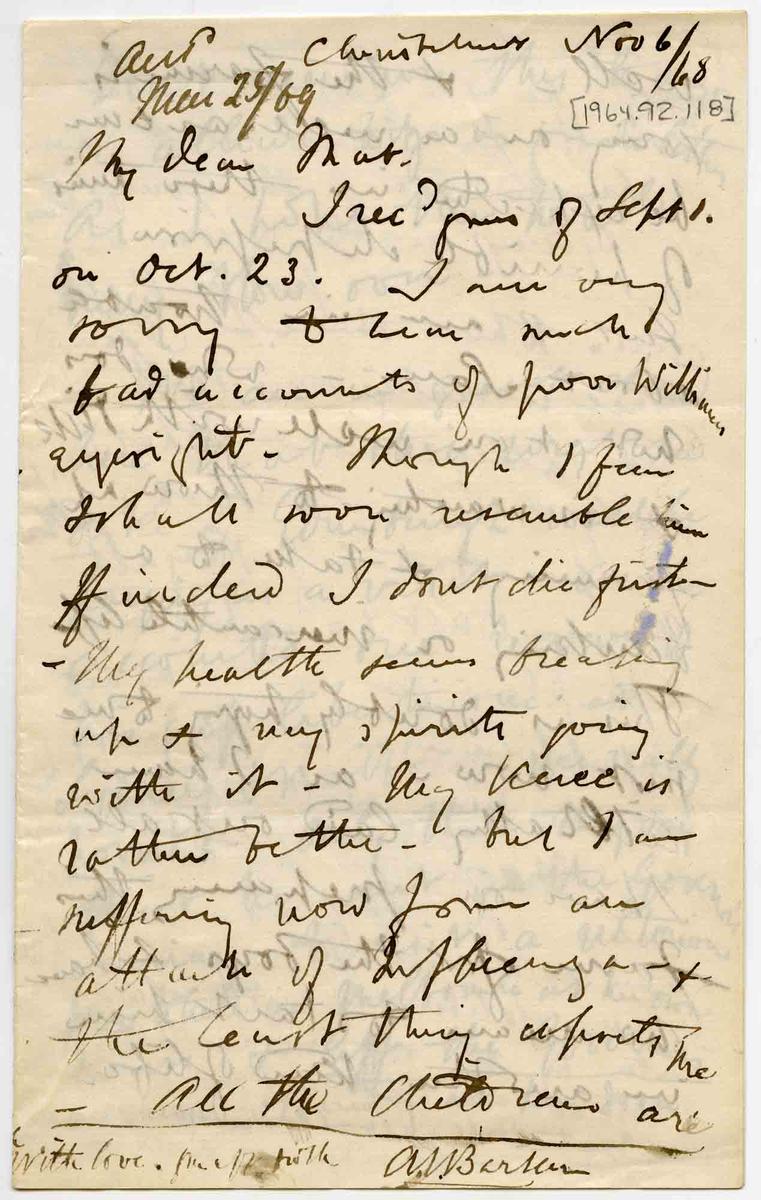 Ansd Christchurch Nov 6/68
Mar 25/69
[1964.92.118]
My dear Mat.
I recd yours of Sept 1.
on Oct. 23. I am very
sorry to hear such
bad accounts of poor Williams
eyesight - Though I fear
I shall soon resemble him
If indeed I dont die first -
- My health seems breaking
up & my spirits going
with it - My Knee is
rather better - but I am
suffering now from an
attack of Influenza - &
the least thing upsets me
- All the Children are
with love.